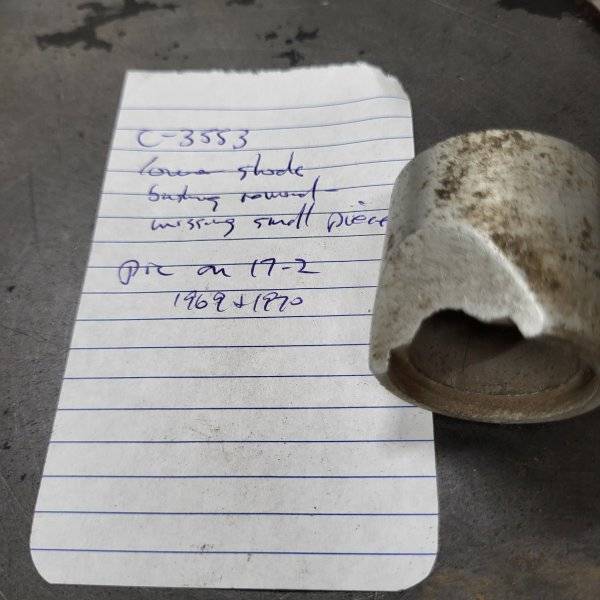 C-3553
lower shock
bushing removal
missing small piece
pic on 17-2
1969 & 1970